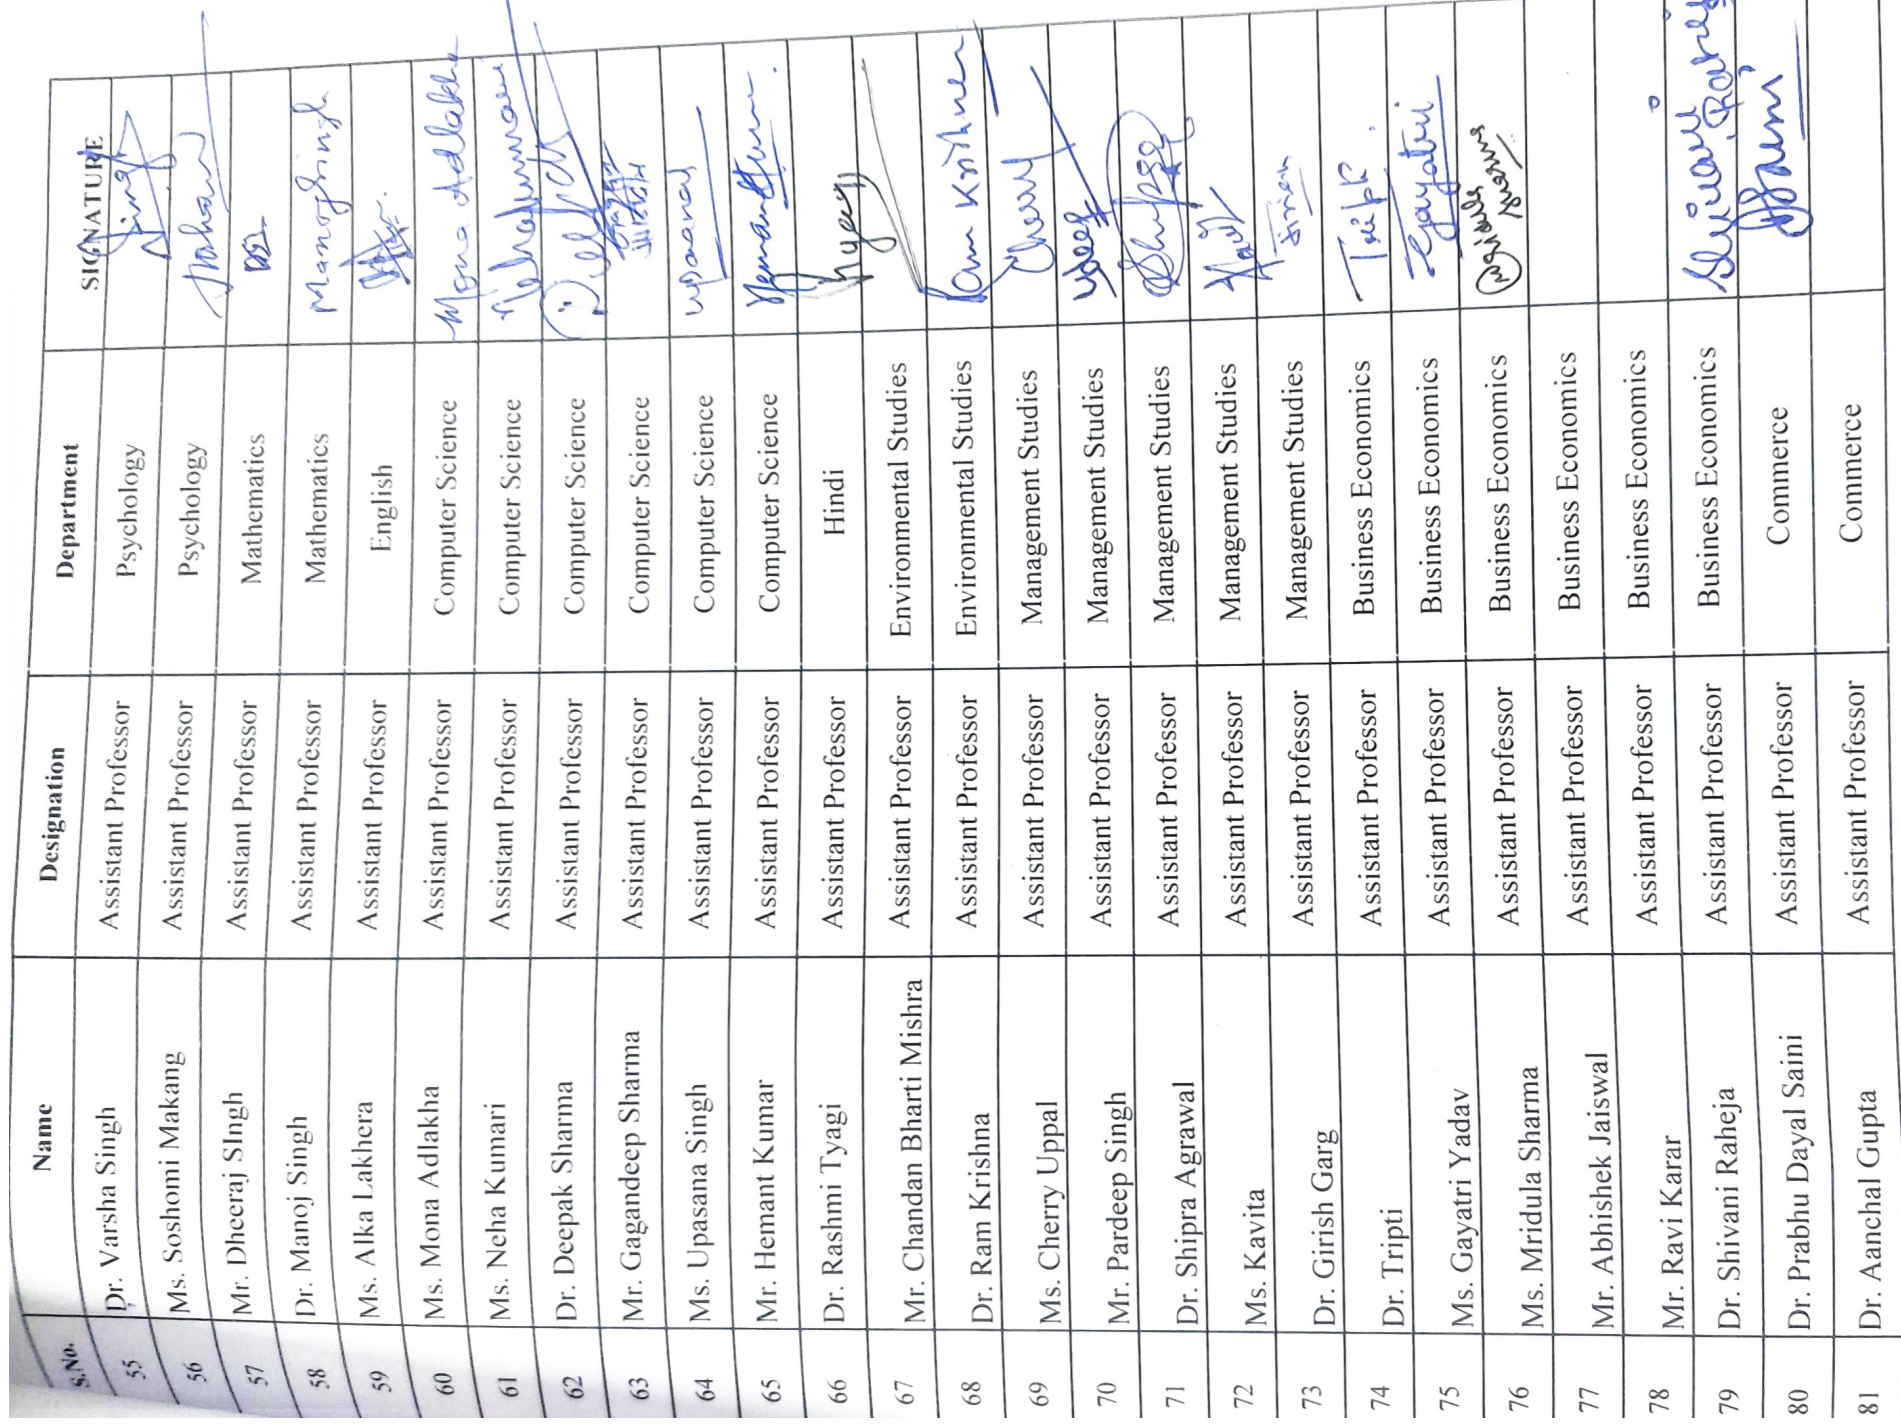 S.No. Name Designation Department SIGNATURE
55 Dr. Varsha Singh Assistant Professor Psychology
56 Ms. Soshomi Makang Assistant Professor Psychology
57 Mr. Dheeraj SIngh Assistant Professor Mathematics
58 Dr. Manoj Singh Assistant Professor Mathematics Manoj Singh
59 Ms. Alka Lakhera Assistant Professor English
60 Ms. Mona Adlakha Assistant Professor Computer Science Mona Adlakha
61 Ms. Neha Kumari Assistant Professor Computer Science Neha Kumari
62 Dr. Deepak Sharma Assistant Professor Computer Science
63 Mr. Gagandeep Sharma Assistant Professor Computer Science
64 Ms. Upasana Singh Assistant Professor Computer Science Upasana
65 Mr. Hemant Kumar Assistant Professor Computer Science Hemant Kumar
66 Dr. Rashmi Tyagi Assistant Professor Hindi
67 Mr. Chandan Bharti Mishra Assistant Professor Environmental Studies
68 Dr. Ram Krishna Assistant Professor Environmental Studies Ram Krishna
69 Ms. Cherry Uppal Assistant Professor Management Studies Cherry
70 Mr. Pardeep Singh Assistant Professor Management Studies
71 Dr. Shipra Agrawal Assistant Professor Management Studies Shipra
72 Ms. Kavita Assistant Professor Management Studies
73 Dr. Girish Garg Assistant Professor Management Studies
74 Dr. Tripti Assistant Professor Business Economics
75 Ms. Gayatri Yadav Assistant Professor Business Economics Gayatri
76 Ms. Mridula Sharma Assistant Professor Business Economics Mridula Sharma
77 Mr. Abhishek Jaiswal Assistant Professor Business Economics
78 Mr. Ravi Karar Assistant Professor Business Economics
79 Dr. Shivani Raheja Assistant Professor Business Economics Shivani Raheja
80 Dr. Prabhu Dayal Saini Assistant Professor Commerce
81 Dr. Aanchal Gupta Assistant Professor Commerce